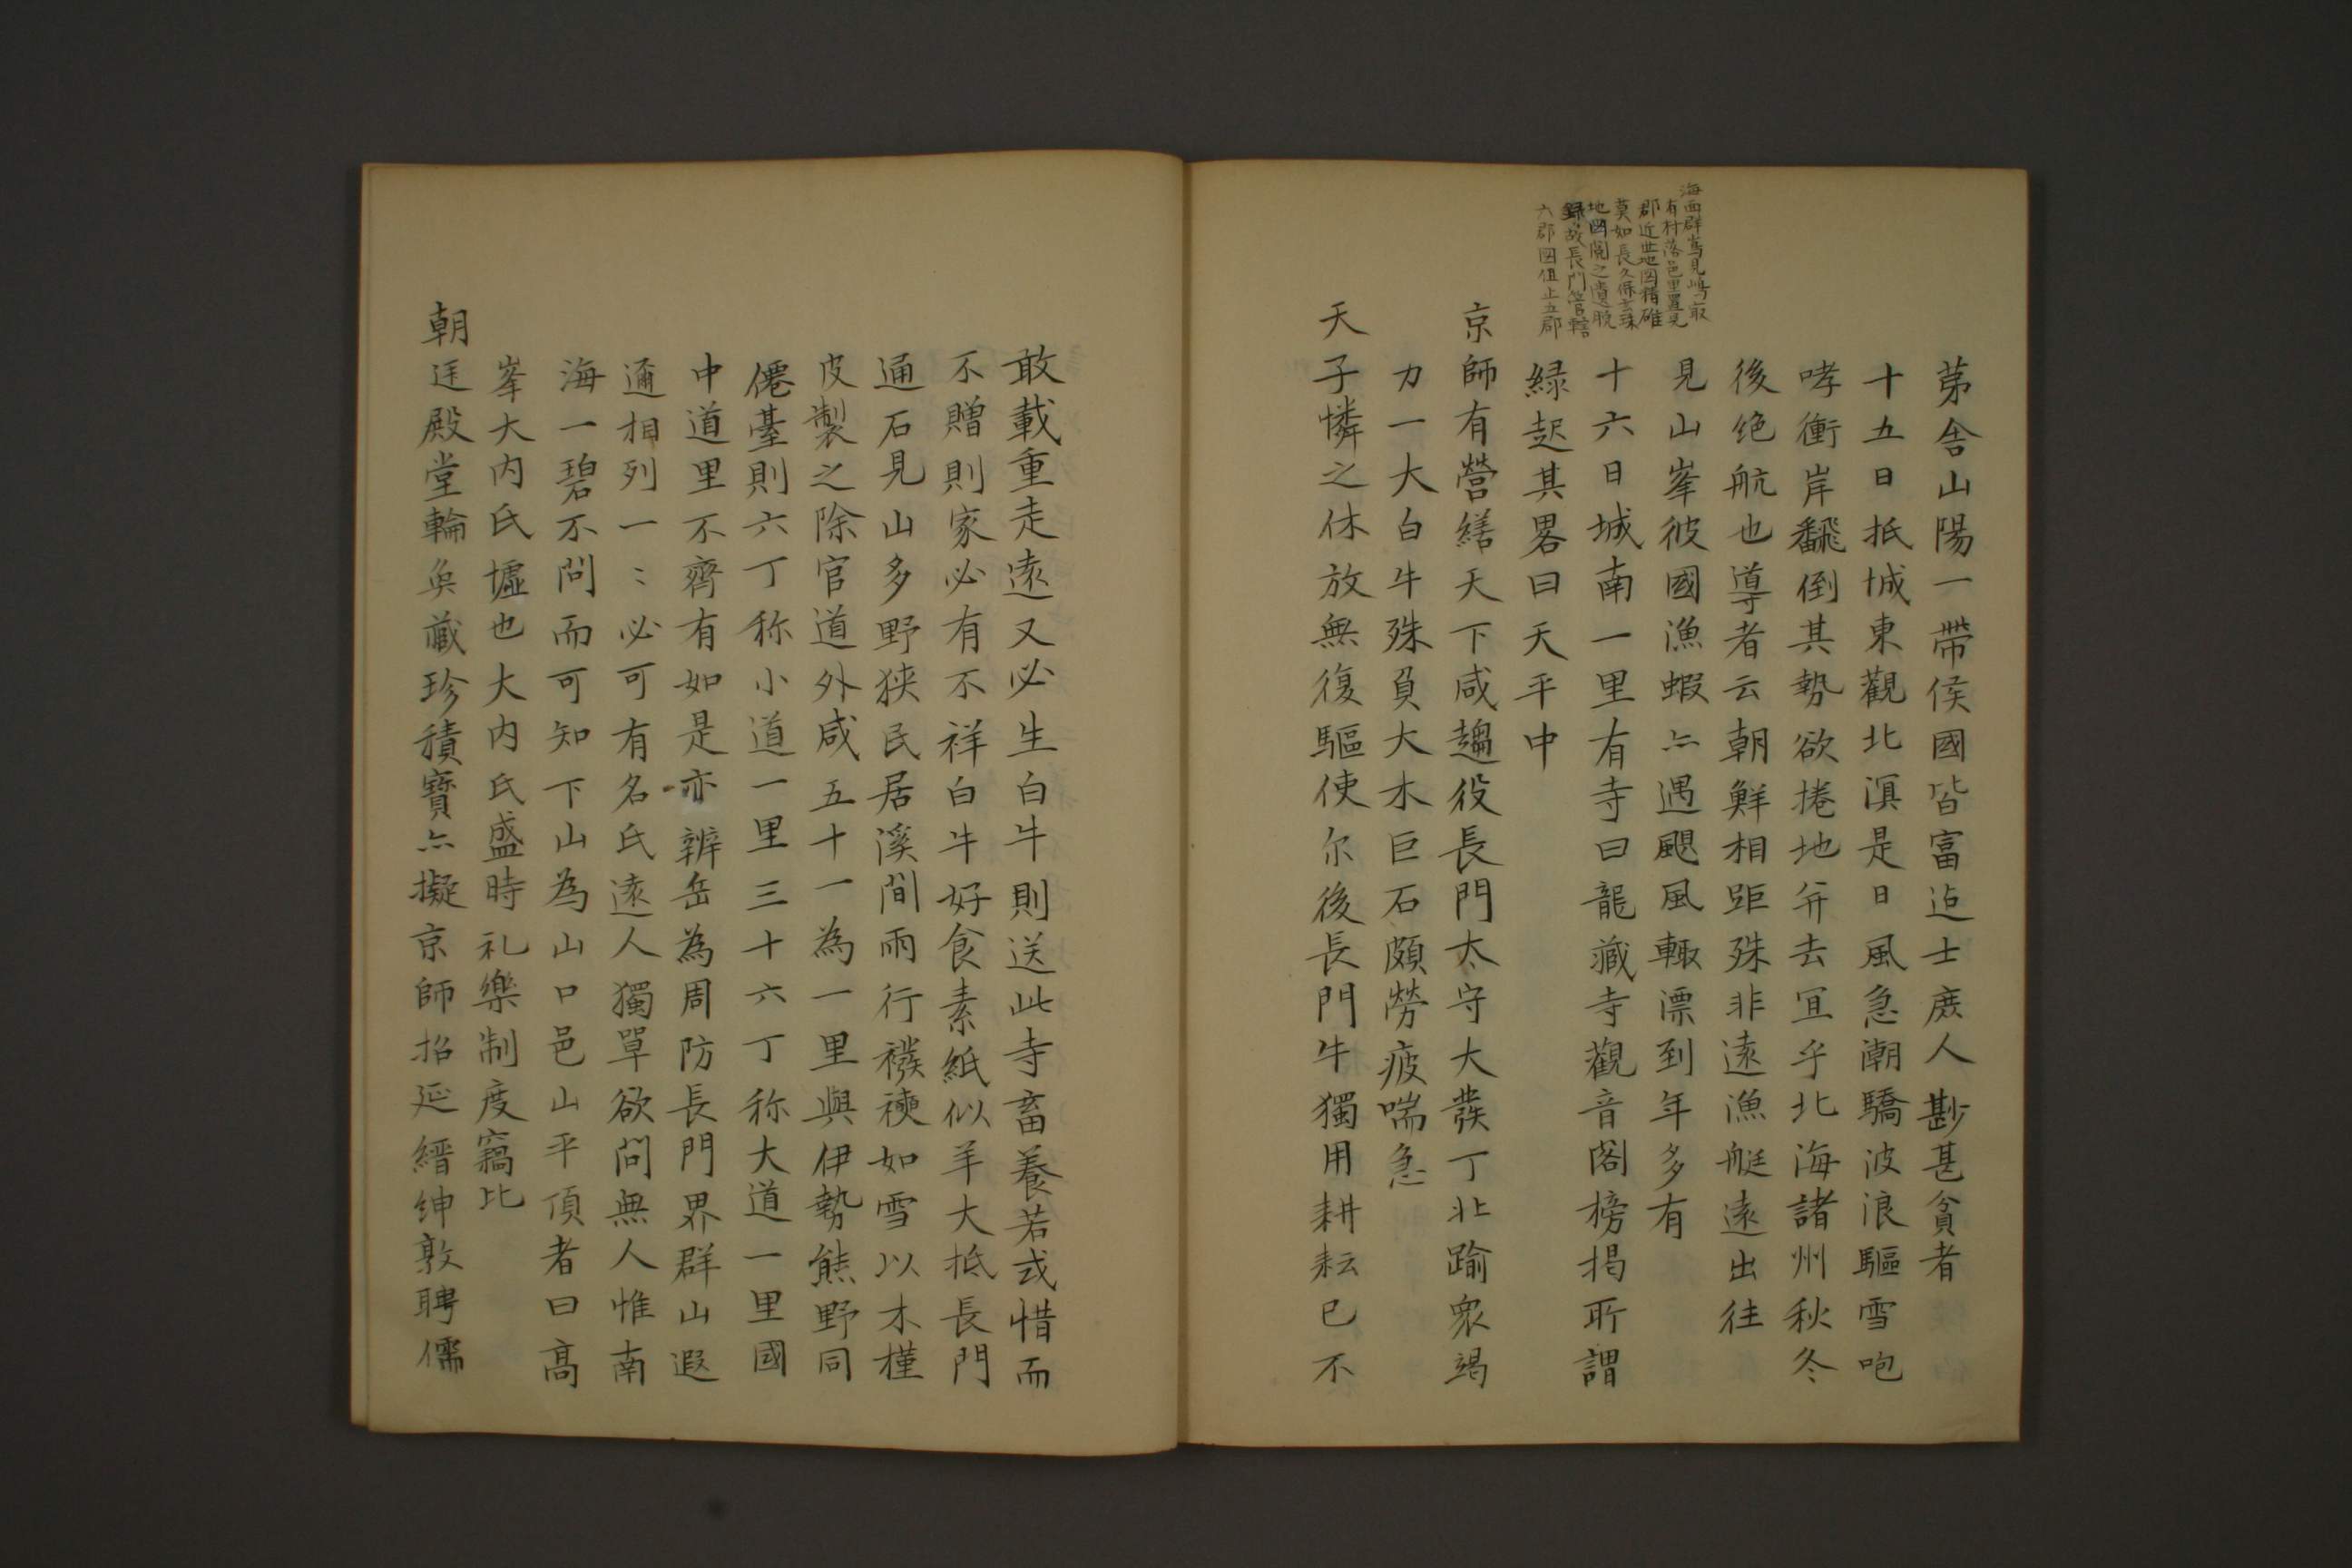 海西群嶌見嶋㝡
有村落邑里置見
郡近世地図精碓
莫如長久保玄珠
地図閲之遺脱
録故長門管轄
六郡図但上五郡
苐舎山陽一帶侯國皆富迠士庻人尠甚貧者
十五日抵城東觀北溟是日風急潮驕波浪驅雪咆
哮衝岸飜倒其勢欲捲地并去冝乎北海諸州秋冬
後绝航也導者云朝鮮相距殊非遠漁艇遠出往
見山峯彼國漁蝦亦遇颶風輙漂到年多有
十六日城南一里有寺曰龍藏寺觀音閣榜掲所謂
緑起其畧曰天平中
京師有營繕天下咸趨役長門太守大發丁北踰衆竭
力一大白牛殊負大木巨石頗勞疲喘急
天子憐之休放無復驅使尓後長門牛獨用耕耘已不
敢載重走遠又必生白牛則送此寺畜養若或惜而
不贈則家必有不祥白牛好食素紙似羊大抵長門
通石見山多野狭民居溪間雨行襏襫如雪以木槿
皮製之除官道外咸五十一為一里與伊勢熊野同
僊臺則六丁称小道一里三十六丁称大道一里國
中道里不齊有如是亦辨岳為周防長門界群山遐
邇相列一〻必可有名氏遠人獨單欲問無人惟南
海一碧不問而可知下山為山口邑山平頂者曰高
峯大内氏墟也大内氏盛時礼樂制度竊比
朝廷殿堂輪奐藏珍積寶亦擬京師招延縉紳敦聘儒